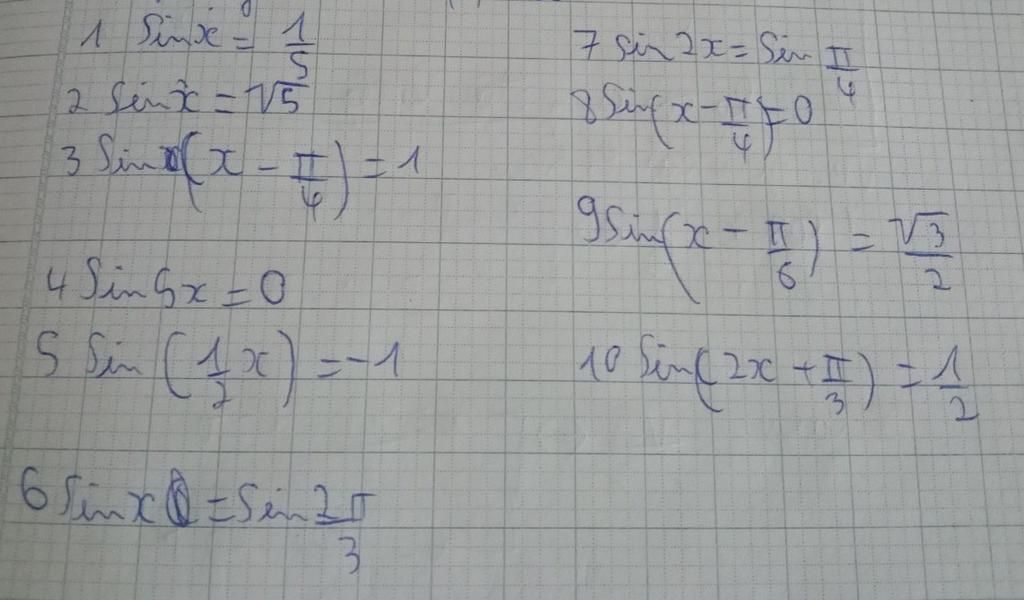 1 Sin x = 1/5
2 Sin x = √5
3 Sin (x - π/4) = 1
4 Sin 5x = 0
5 Sin (1/2 x) = -1
6 Sin x = Sin 2π/3
7 Sin 2x = Sin π/4
8 Sin(x - π/4) = 0
9 Sin(x - π/6) = √3/2
10 Sin(2x + π/3) = 1/2